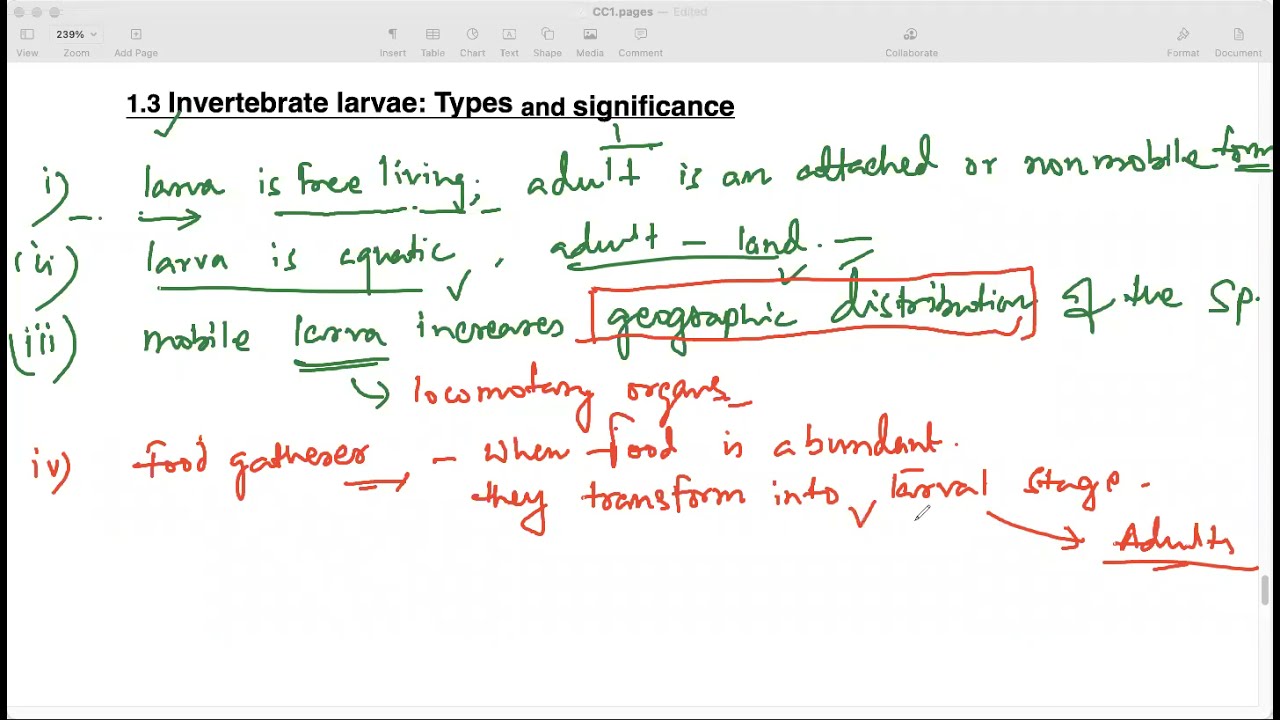 CC1.pages — Edited
239%
View Zoom Add Page Insert Table Chart Text Shape Media Comment Collaborate Format Document
1.3 Invertebrate larvae: Types and significance
i) larva is free living; adult is an attached or nonmobile form
(ii) larva is aquatic, adult - land.
(iii) mobile larva increases geographic distribution of the sp.
locomotary organs
iv) food gatherer - when food is abundant.
they transform into larval stage.
Adults